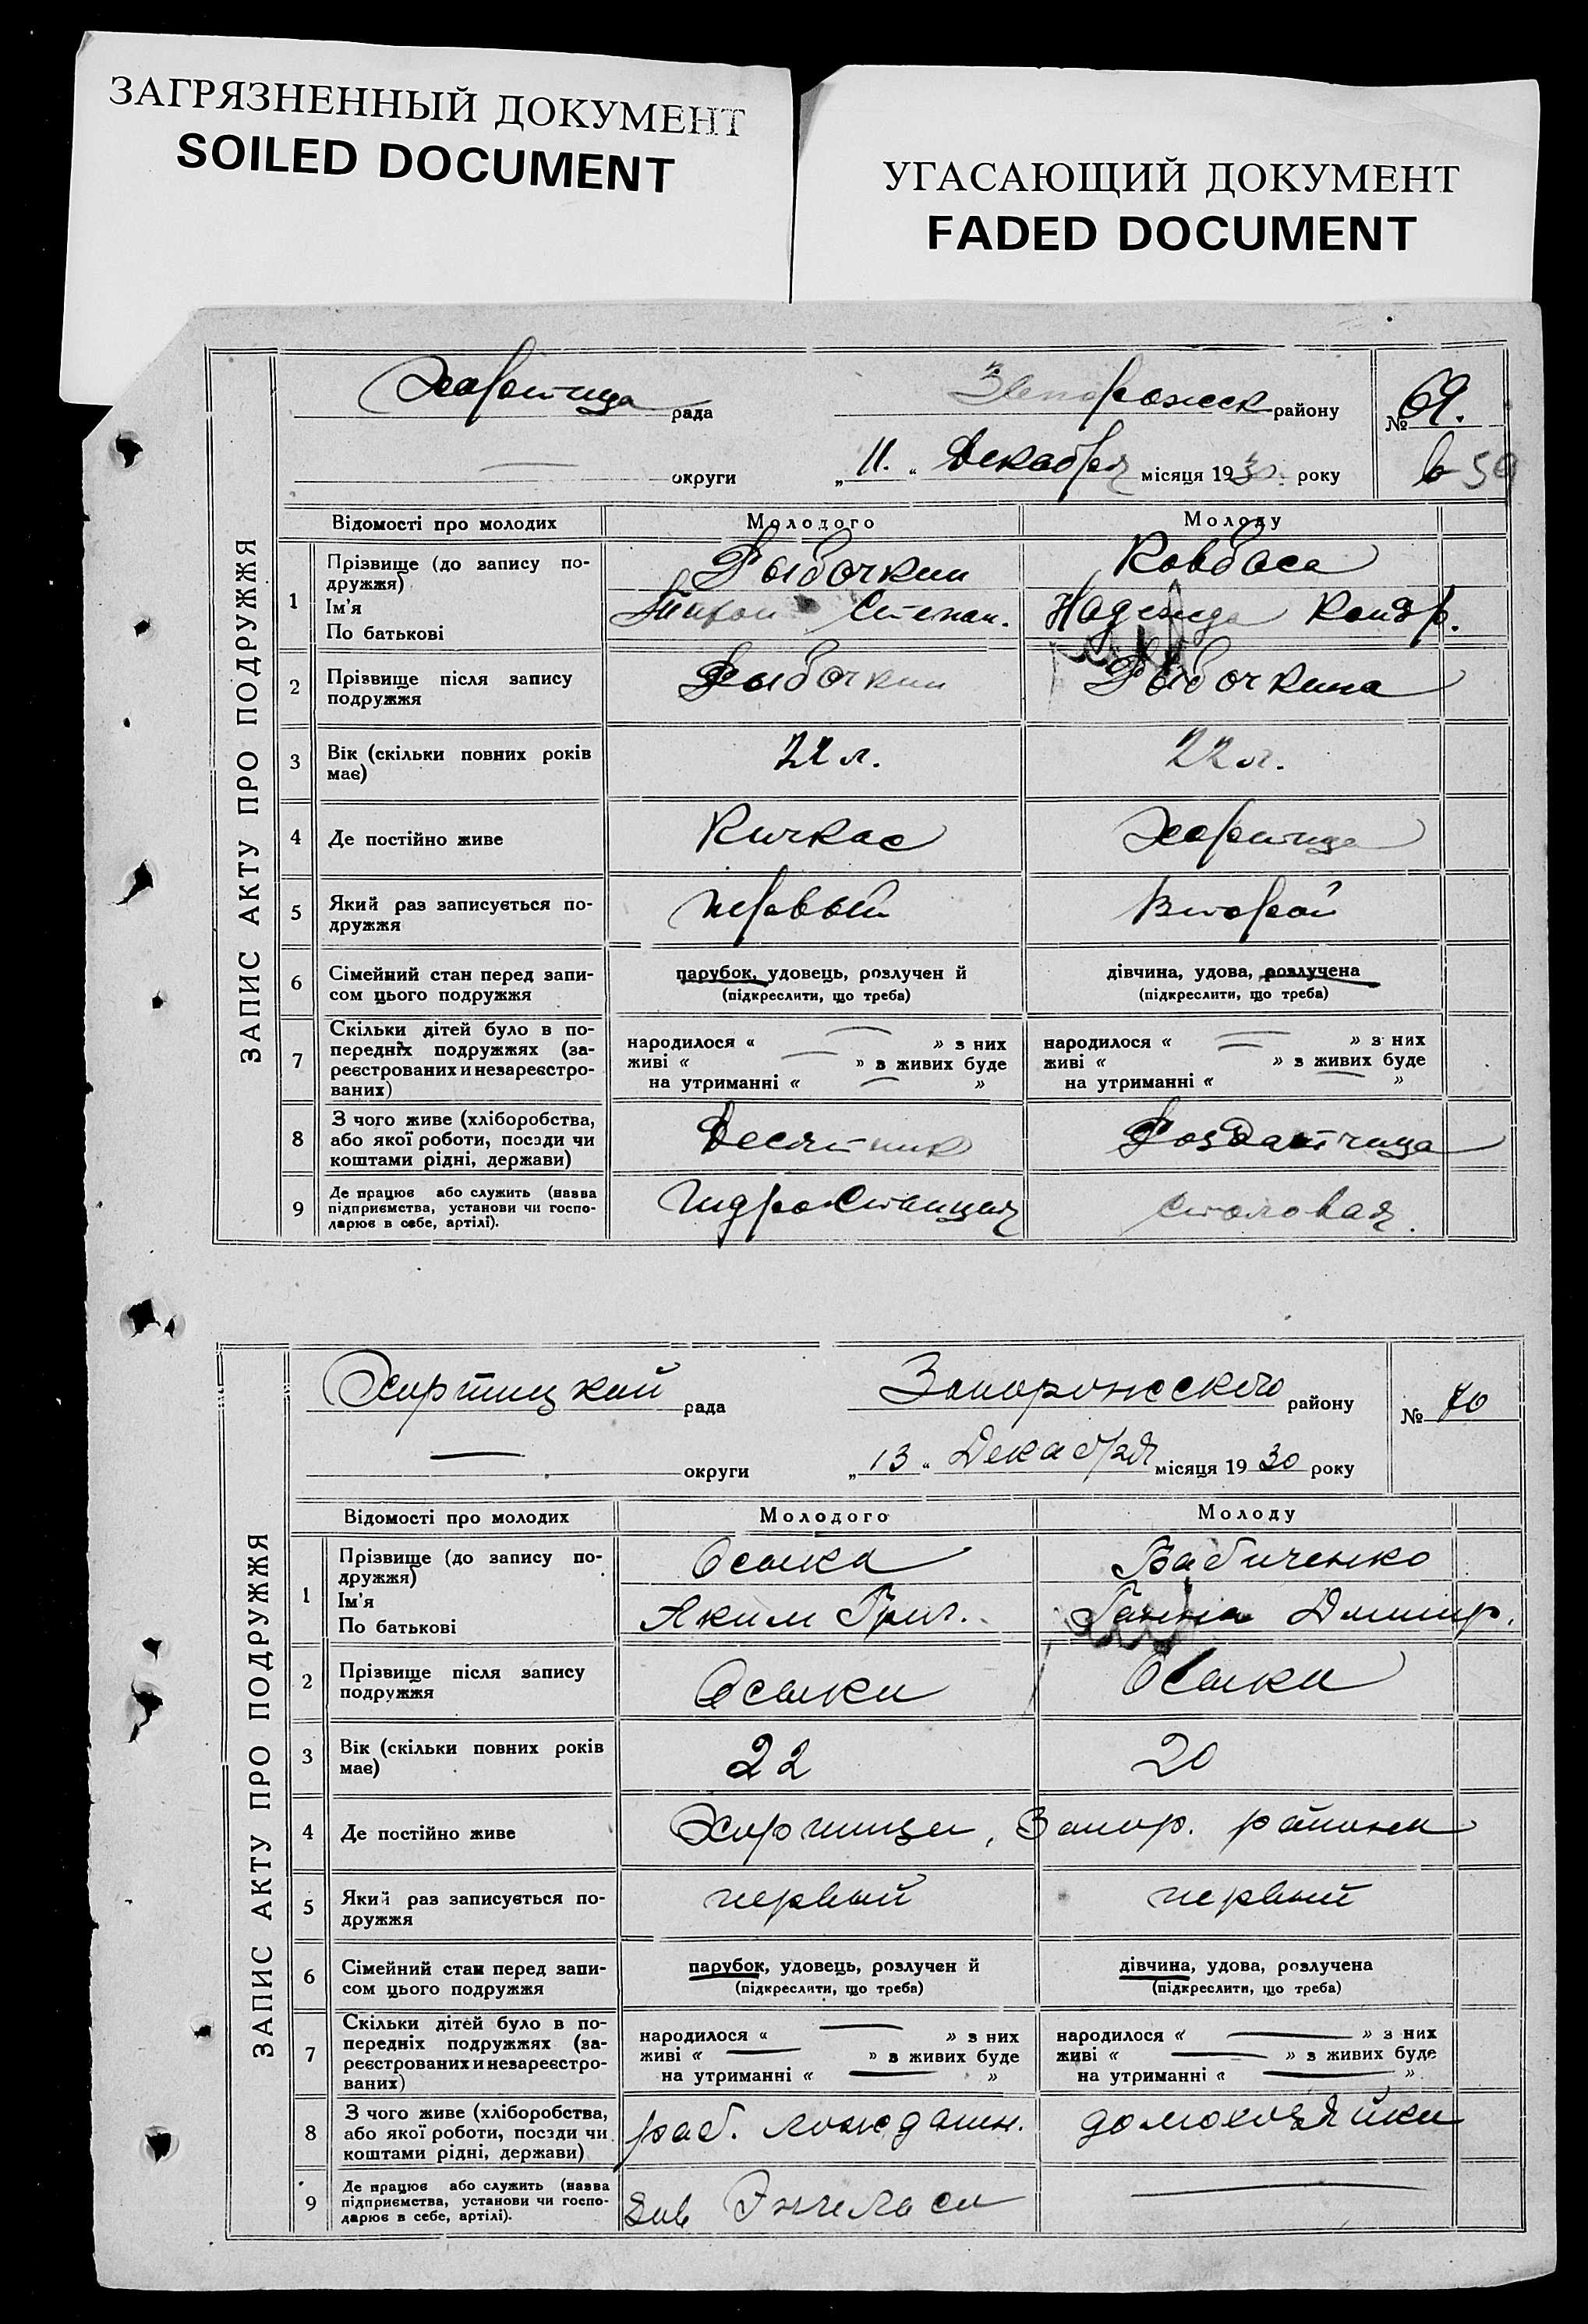 ЗАГРЯЗНЕННЫЙ ДОКУМЕНТ
SOILED DOCUMENT
УГАСАЮЩИЙ ДОКУМЕНТ
FADED DOCUMENT
ЗАПИС АКТУ ПРО ПОДРУЖЖЯ
Хортица рада Запорожск району № 69.
— округи „11.“ Декабря місяця 1930. року
Відомості про молодих Молодого Молоду
1 Прізвище (до запису по-
дружжя) Рыбочкин Ковбаса
Ім'я
По батькові Степан. Надежда Кондр.
2 Прізвище після запису
подружжя Рыбочкин Рыбочкина
3 Вік (скільки повних років
має) 22 л. 22 л.
4 Де постійно живе Кичкас Хортица
5 Який раз записується по-
дружжя первый второй
6 Сімейний стан перед запи-
сом цього подружжя парубок, удовець, розлучен й дівчина, удова, розлучена
(підкреслити, що треба) (підкреслити, що треба)
7 Скільки дітей було в по-
передніх подружжях (за-
реєстрованих и незареєстро-
ваних)
народилося « — » з них народилося « — » з них
живі « — » з живих буде живі « » з живих буде
на утриманні « — » на утриманні « — »
8 З чого живе (хліборобства,
або якої роботи, посади чи
коштами рідні, держави) Десятник Раздатчица
9 Де працює або служить (назва
підприємства, установи чи госпо-
дарює в себе, артілі). Гидростанция столовая.
ЗАПИС АКТУ ПРО ПОДРУЖЖЯ
Хортицкой рада Запорожского району № 70
— округи „13“ Декабря місяця 1930 року
Відомості про молодих Молодого Молоду
1 Прізвище (до запису по-
дружжя) Бабиченко
Ім'я
По батькові Аким Григ. Ганна Дмитр.
2 Прізвище після запису
подружжя
3 Вік (скільки повних років
має) 22 20
4 Де постійно живе Хортица, Запор. района
5 Який раз записується по-
дружжя первый первый
6 Сімейний стан перед запи-
сом цього подружжя парубок, удовець, розлучен й дівчина, удова, розлучена
(підкреслити, що треба) (підкреслити, що треба)
7 Скільки дітей було в по-
передніх подружжях (за-
реєстрованих и незареєстро-
ваних)
народилося « — » з них народилося « — » з них
живі « — » з живих буде живі « — » з живих буде
на утриманні « — » на утриманні « — »
8 З чого живе (хліборобства,
або якої роботи, посади чи
коштами рідні, держави) раб. домохозяйка
9 Де працює або служить (назва
підприємства, установи чи госпо-
дарює в себе, артілі). Зав Энгельса —